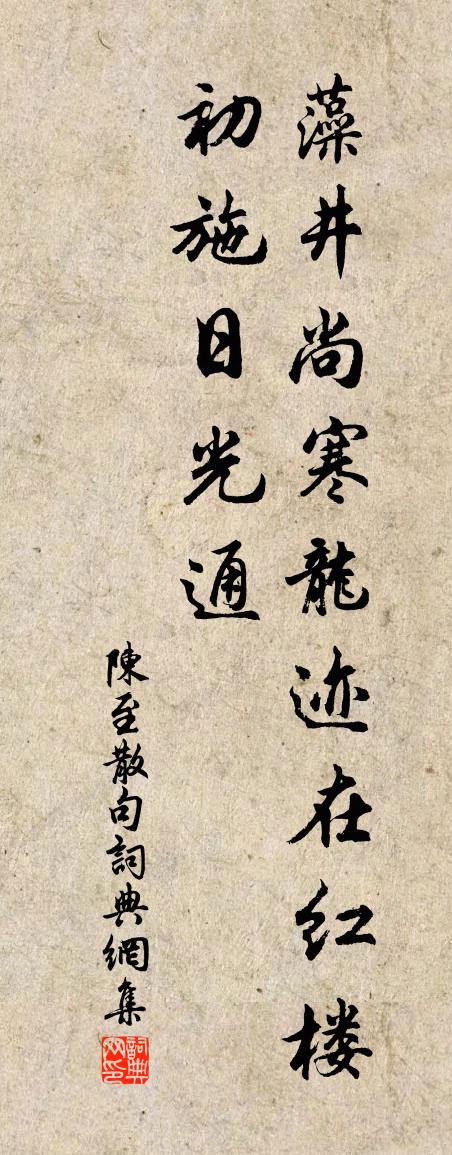 藻井尚寒龍迹在红楼
初施日光通
陳至散句詞典網集
詞典网印